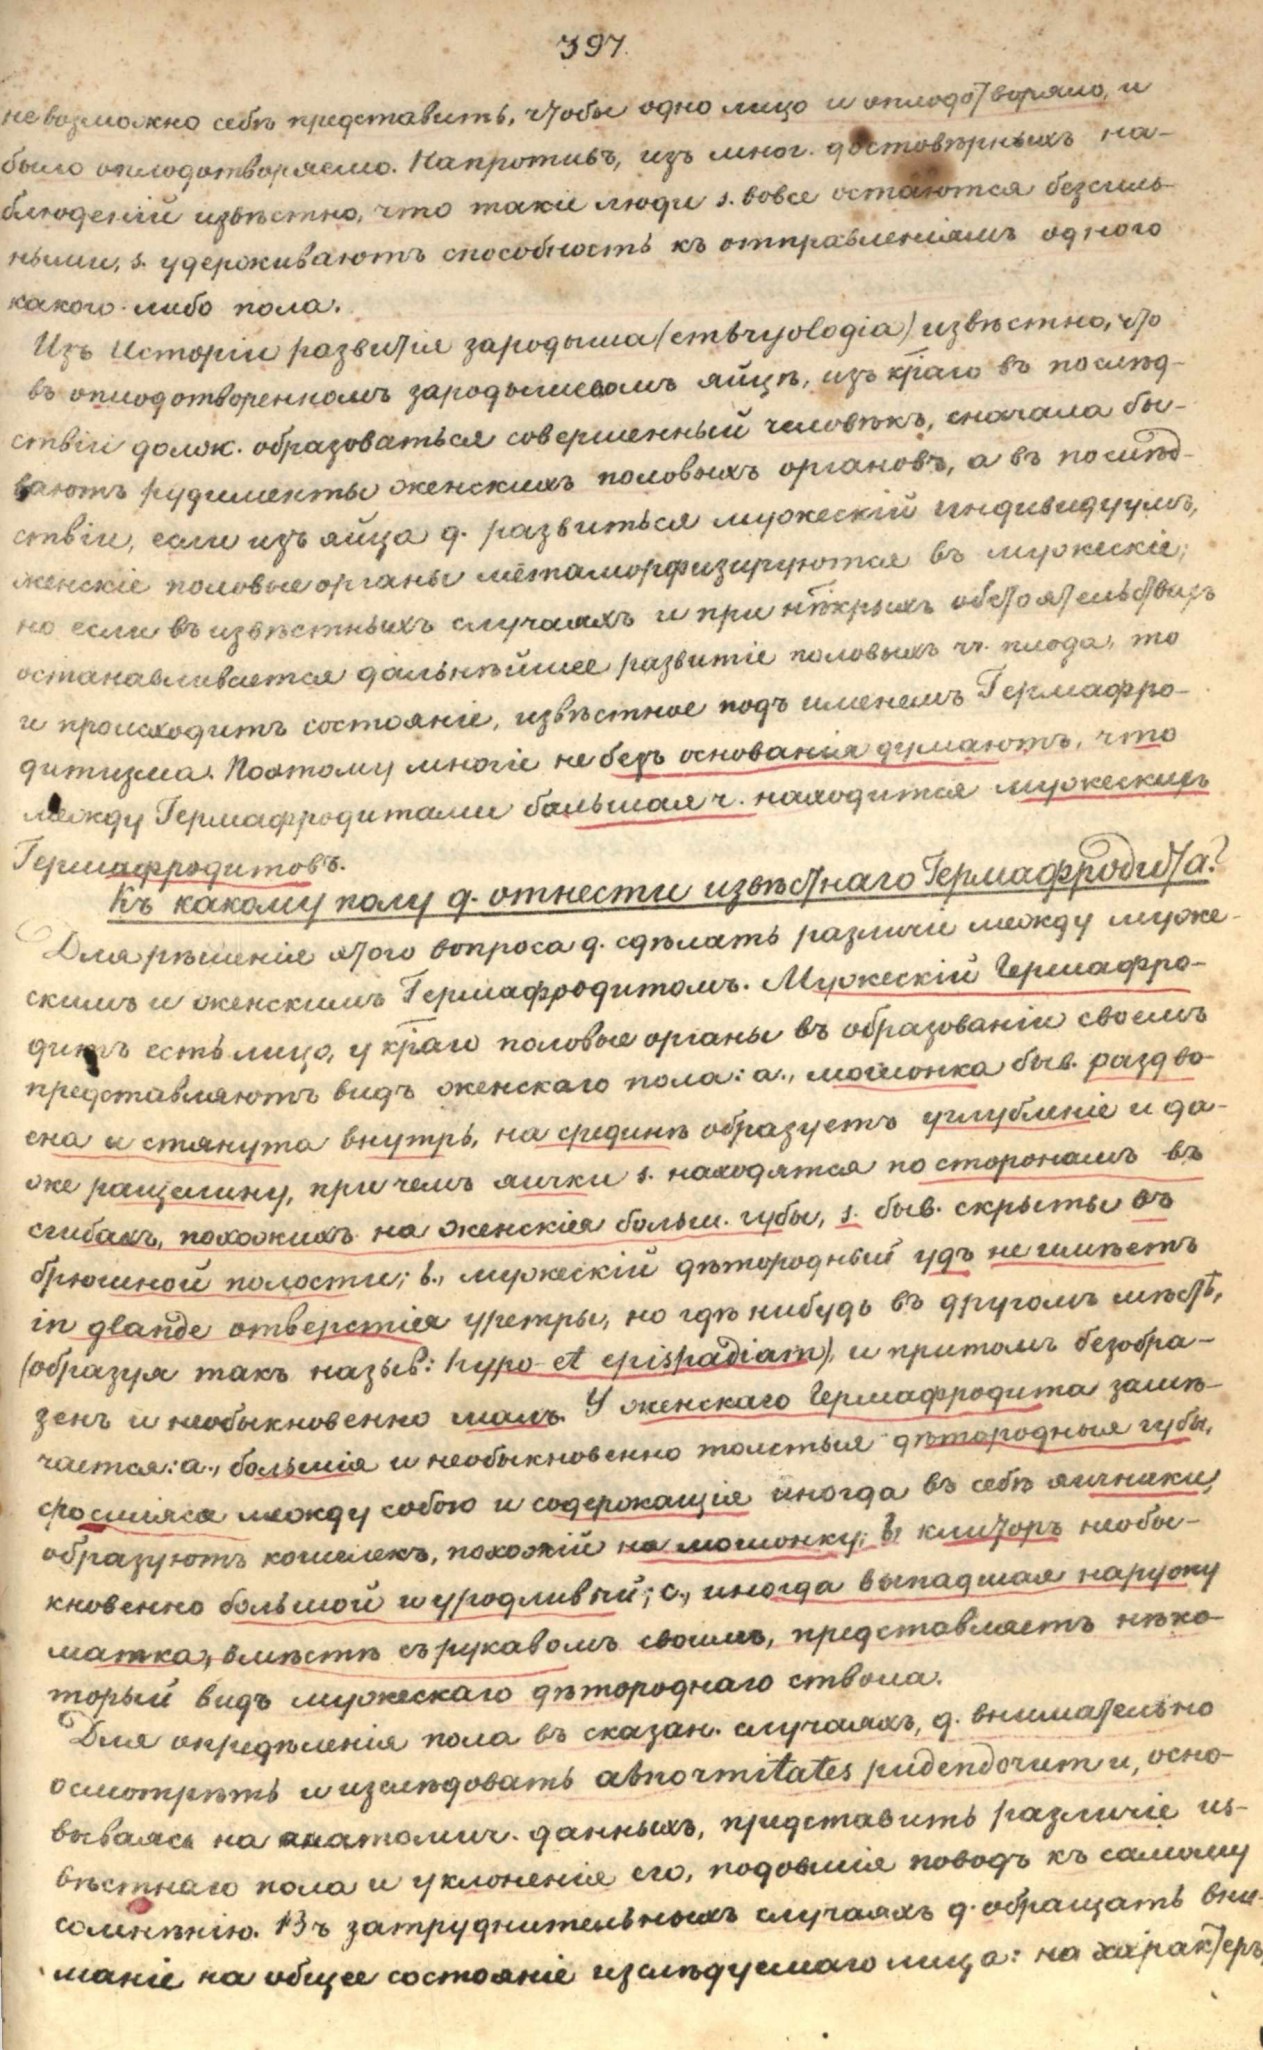 397.
невозможно себѣ представить, чтобы одно лицо и оплодотворяло, и
было оплодотворяемо. Напротивъ, изъ мног. достовѣрныхъ на-
блюденій извѣстно, что такіе люди s. вовсе остаются безсиль-
ными, s. удерживаютъ способность къ отправленіямъ одного
какого-либо пола.
Изъ Исторіи развитія зародыша (embryologia) извѣстно, что
въ оплодотворенномъ зародышевомъ яйцѣ, изъ кṝаго въ послѣд-
ствіи долж. образоваться совершенный человѣкъ, сначала бы-
ваютъ рудименты женскихъ половыхъ органовъ, а въ послѣд-
ствіи, если изъ яйца д. развиться мужескій индивидуумъ,
женскіе половые органы метаморфизируются въ мужескіе;
но если въ извѣстныхъ случаяхъ и при нѣкрыхъ обстоятельствахъ
останавливается дальнѣйшее развитіе половыхъ чч. плода, то
и происходитъ состояніе, извѣстное подъ именемъ Гермафро-
дитизма. Поэтому многіе не безъ основанія думаютъ, что
между Гермафродитами большая ч. находится мужескихъ
Гермафродитовъ.
Къ какому полу д. отнести извѣстнаго Гермафродита?
Для рѣшеніе этого вопроса д. сдѣлать различіе между муже-
скимъ и женскимъ Гермафродитомъ. Мужескій Гермафро-
дитъ есть лицо, у кṝаго половые органы въ образованіи своемъ
представляютъ видъ женскаго пола: a., мошонка быв. раздво-
ена и стянута внутрь, на срединѣ образуетъ углубленіе и да-
же ращелину, при чемъ яички s. находятся по сторонамъ въ
сгибахъ, похожихъ на женскія больш. губы, s. быв. скрыты въ
брюшной полости; b., мужескій дѣтородный удъ не имѣетъ
in glande отверстія уретры, но гдѣ нибудь въ другомъ мѣстѣ,
(образуя такъ назыв: hypo- et epispadiam), и притомъ безобра-
зенъ и необыкновенно малъ. У женскаго Гермафродита замѣ-
чается: a., большія и необыкновенно толстыя дѣтородныя губы,
сросшіяся между собою и содержащія иногда въ себѣ яичники,
образуютъ кошелекъ, похожій на мошонку; b., клиторъ необы-
кновенно большой и уродливый; c., иногда выпадшая наружу
матка, вмѣстѣ съ рукавомъ своимъ, представляетъ нѣко-
торый видъ мужескаго дѣтороднаго ствола.
Для опредѣленія пола въ сказан. случаяхъ, д. внимательно
осмотрѣть и изслѣдовать abnormitates pudendorum и, осно-
вываясь на анатомич. данныхъ, представить различіе из-
вѣстнаго пола и уклоненіе его, подавшія поводъ къ самому
сомнѣнію. Въ затруднительныхъ случаяхъ д. обращать вни-
маніе на общее состояніе изслѣдуемаго лица: на характеръ,